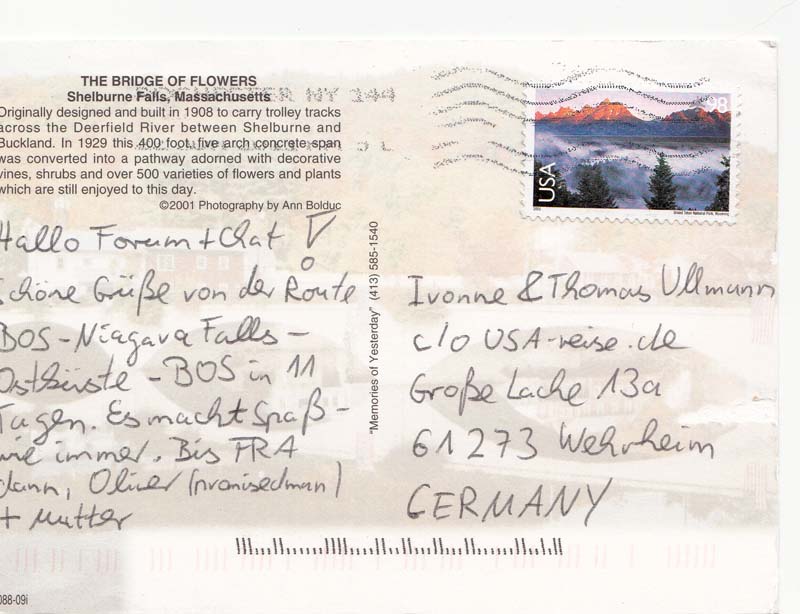 THE BRIDGE OF FLOWERS
Shelburne Falls, Massachusetts
Originally designed and built in 1908 to carry trolley tracks
across the Deerfield River between Shelburne and
Buckland. In 1929 this 400 foot, five arch concrete span
was converted into a pathway adorned with decorative
vines, shrubs and over 500 varieties of flowers and plants
which are still enjoyed to this day.
©2001 Photography by Ann Bolduc
Hallo Forum + Chat !
Schöne Grüße von der Route
BOS - Niagara Falls -
Ostküste - BOS in 11
Tagen. Es macht Spaß -
wie immer. Bis FRA
dann, Oliver (promisedman)
+ Mutter
"Memories of Yesterday" (413) 585-1540
NY 144
98
USA
Grand Teton National Park, Wyoming
Ivonne & Thomas Ullmann
c/o USA-reise.de
Große Lache 13a
61273 Wehrheim
GERMANY
088-09i